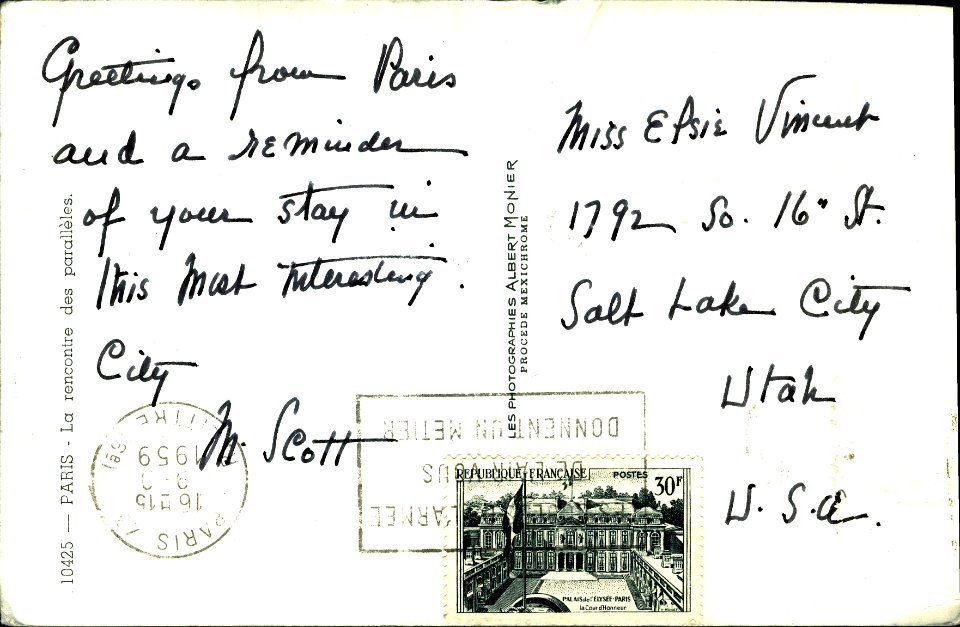 Greetings from Paris
and a reminder
of your stay in
this most interesting.
City
M. Scott
Miss Elsie Vincent
1792 So. 16" St.
Salt Lake City
Utah
U. S. A.
10425 — PARIS - La rencontre des parallèles.
LES PHOTOGRAPHIES ALBERT MONIER
PROCEDE MEXICHROME
PARIS
16H15
1959
DONNENT UN METIER
L'ARMEE
REPUBLIQUE FRANÇAISE
POSTES
30F
PALAIS de l'ÉLYSÉE-PARIS
la Cour d'Honneur